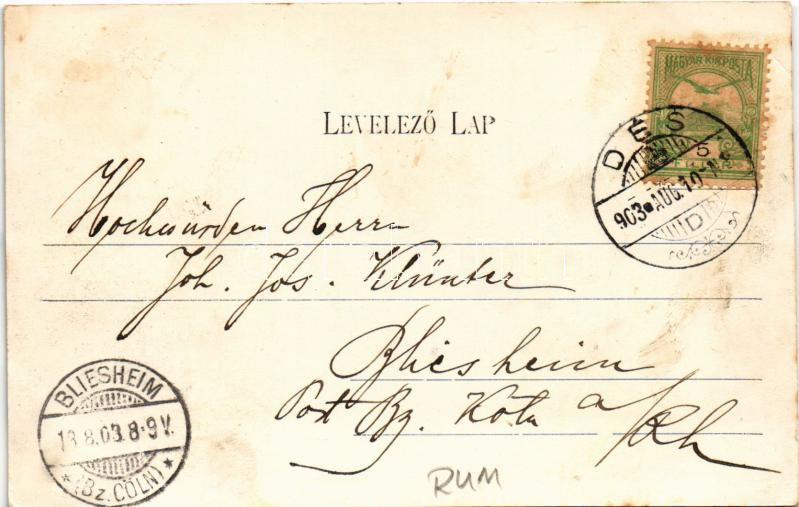 LEVELEZŐ LAP
MAGYAR KIR. POSTA
5
DÉS
903 AUG. 10
D
Hochwürden Herrn
Joh. Jos. Klünter
Bliesheim
Post Bz. Köln a/Rh
BLIESHEIM
13.8.03.8-9V.
* (Bz. CÖLN) *
RUM